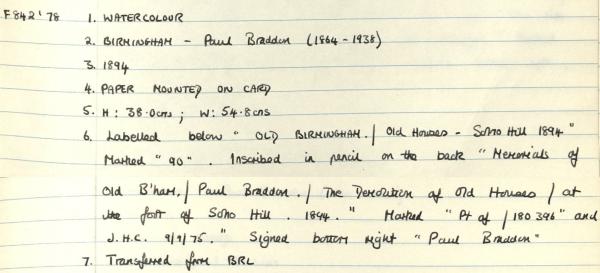 F842'78 1. WATERCOLOUR
2. BIRMINGHAM - Paul Braddon (1864-1938)
3. 1894
4. PAPER MOUNTED ON CARD
5. H: 38.0cms ; W: 54.8cms
6. Labelled below "OLD BIRMINGHAM./ Old Houses - Soho Hill 1894"
Marked "90". Inscribed in pencil on the back "Memorials of
Old B'ham./ Paul Braddon./ The Demolition of Old Houses / at
the foot of Soho Hill. 1894." Marked "Pt of / 180396" and
J.H.C. 9/9/75." Signed bottom right "Paul Braddon"
7. Transferred from BRL